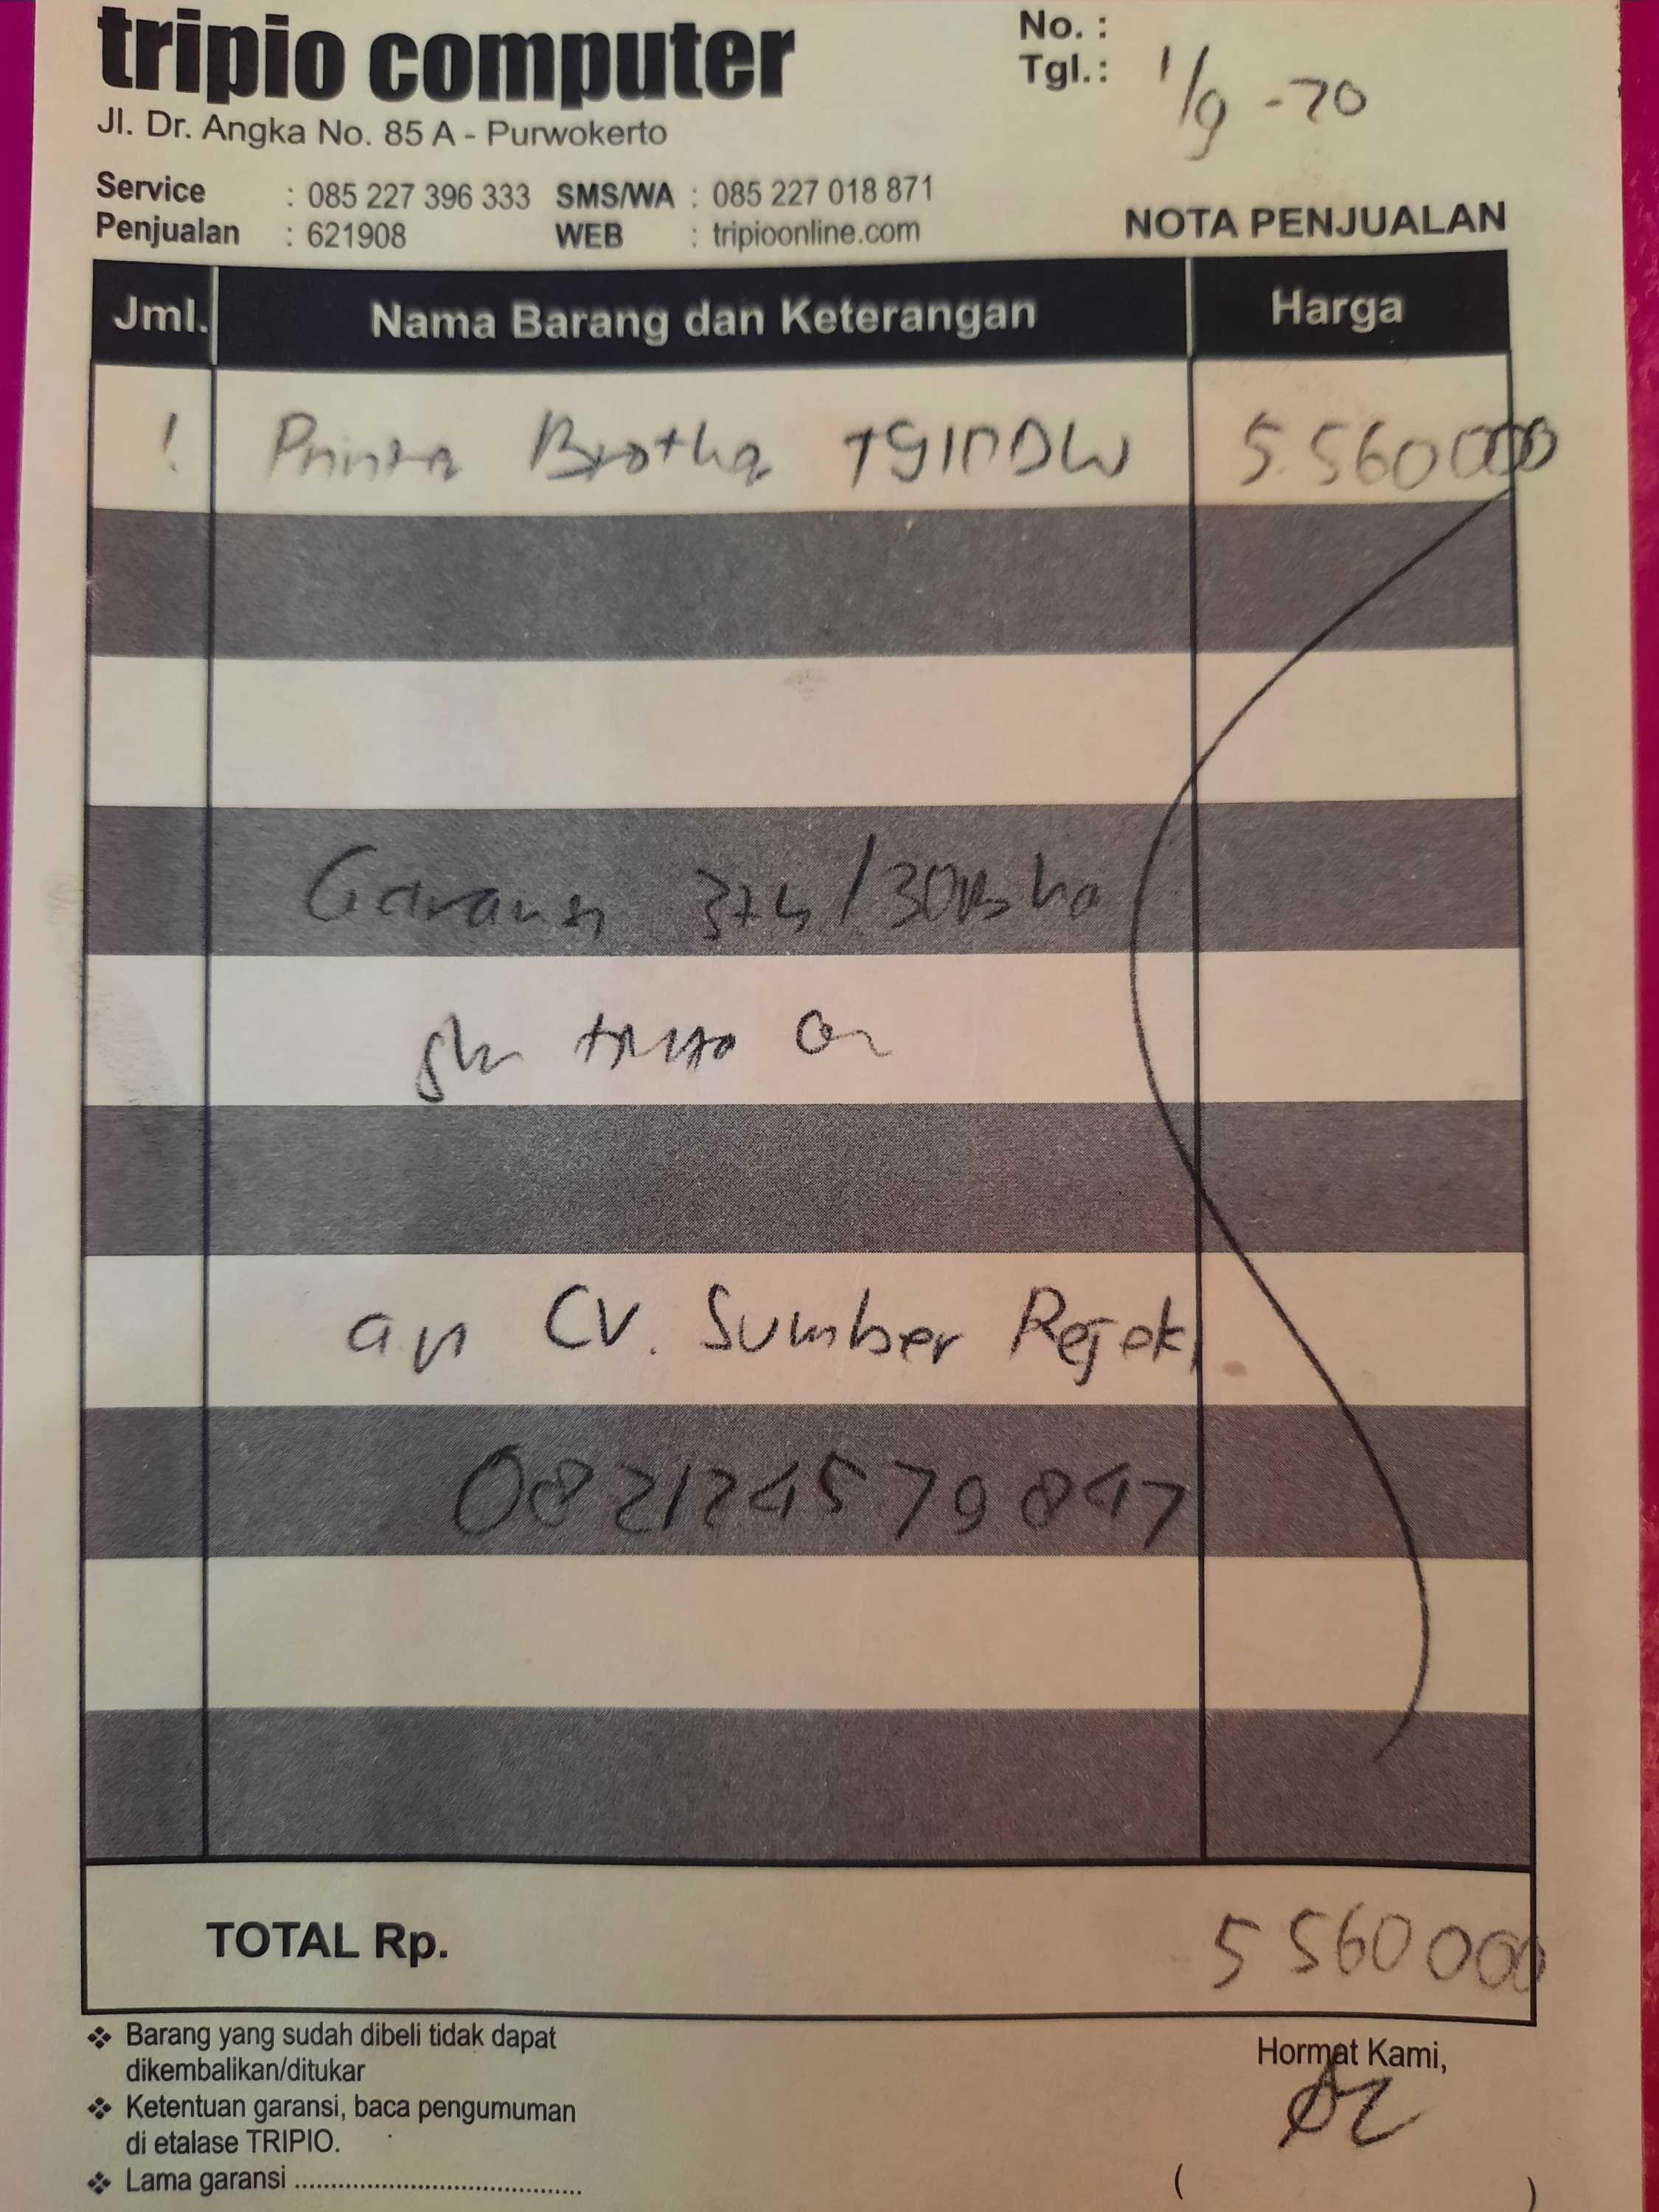 tripio computer
No. :
Tgl.: 1/9 - 20
Jl. Dr. Angka No. 85 A - Purwokerto
Service : 085 227 396 333 SMS/WA : 085 227 018 871
Penjualan : 621908 WEB : tripioonline.com
NOTA PENJUALAN
Jml. Nama Barang dan Keterangan Harga
1 Printer Brother T910DW 5.560000
Garansi 3th/30
an CV. Sumber Rejeki
082124579847
TOTAL Rp. 5 560 000
❖ Barang yang sudah dibeli tidak dapat
dikembalikan/ditukar
❖ Ketentuan garansi, baca pengumuman
di etalase TRIPIO.
❖ Lama garansi ..........................................
Hormat Kami,
( )